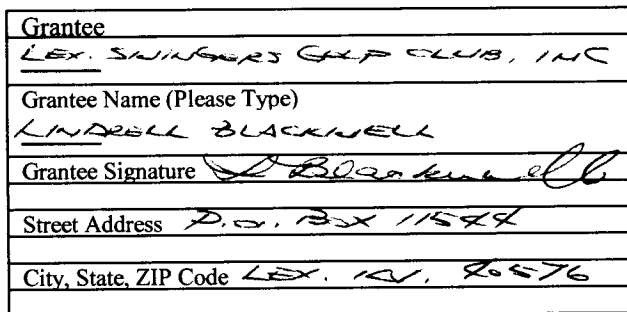 Grantee
LEX. SWINGERS GOLF CLUB, INC
Grantee Name (Please Type)
LINDRELL BLACKWELL
Grantee Signature L Blackwell
Street Address P.O. BOX 11544
City, State, ZIP Code LEX. KY. 40576